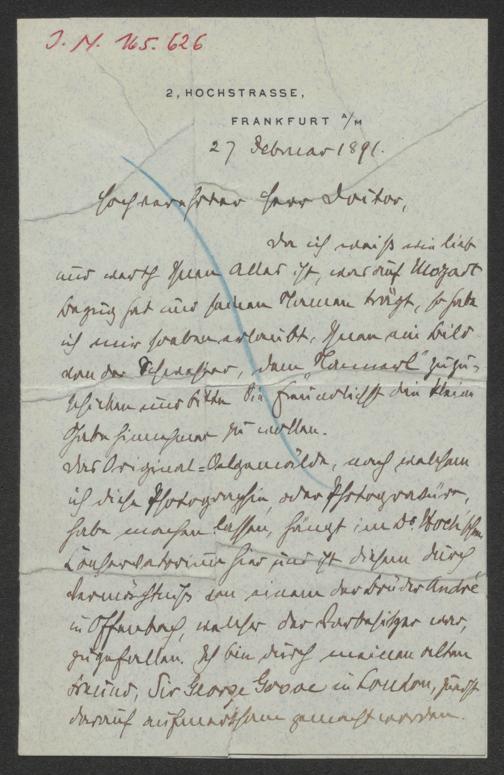 J. N. 165.626
2, HOCHSTRASSE,
FRANKFURT A/M
27 Februar 1891.
Hochverehrter Herr Doctor,
Da ich weiß wie lieb
und werth Ihnen Alles ist, was auf Mozart
Bezug hat und seinen Namen trägt, so habe
ich mir soeben erlaubt, Ihnen ein Bild
von der Schwester, dem "Nannerl" zuzu-
schicken und bitte Sie freundlichst die kleine
Gabe hinnehmen zu wollen.
Das Original-Oelgemälde, nach welchem
ich diese Photographie oder Photogravüre,
habe machen lassen, hängt im Dr Hoch'schen
Conservatorium hier und ist diesem durch
Vermächtniß von einem der Brüder André
in Offenbach, welcher der Vorbesitzer war,
zugefallen. Ich bin durch meinen alten
Freund, Sir George Grove in London, zuerst
darauf aufmerksam gemacht worden.